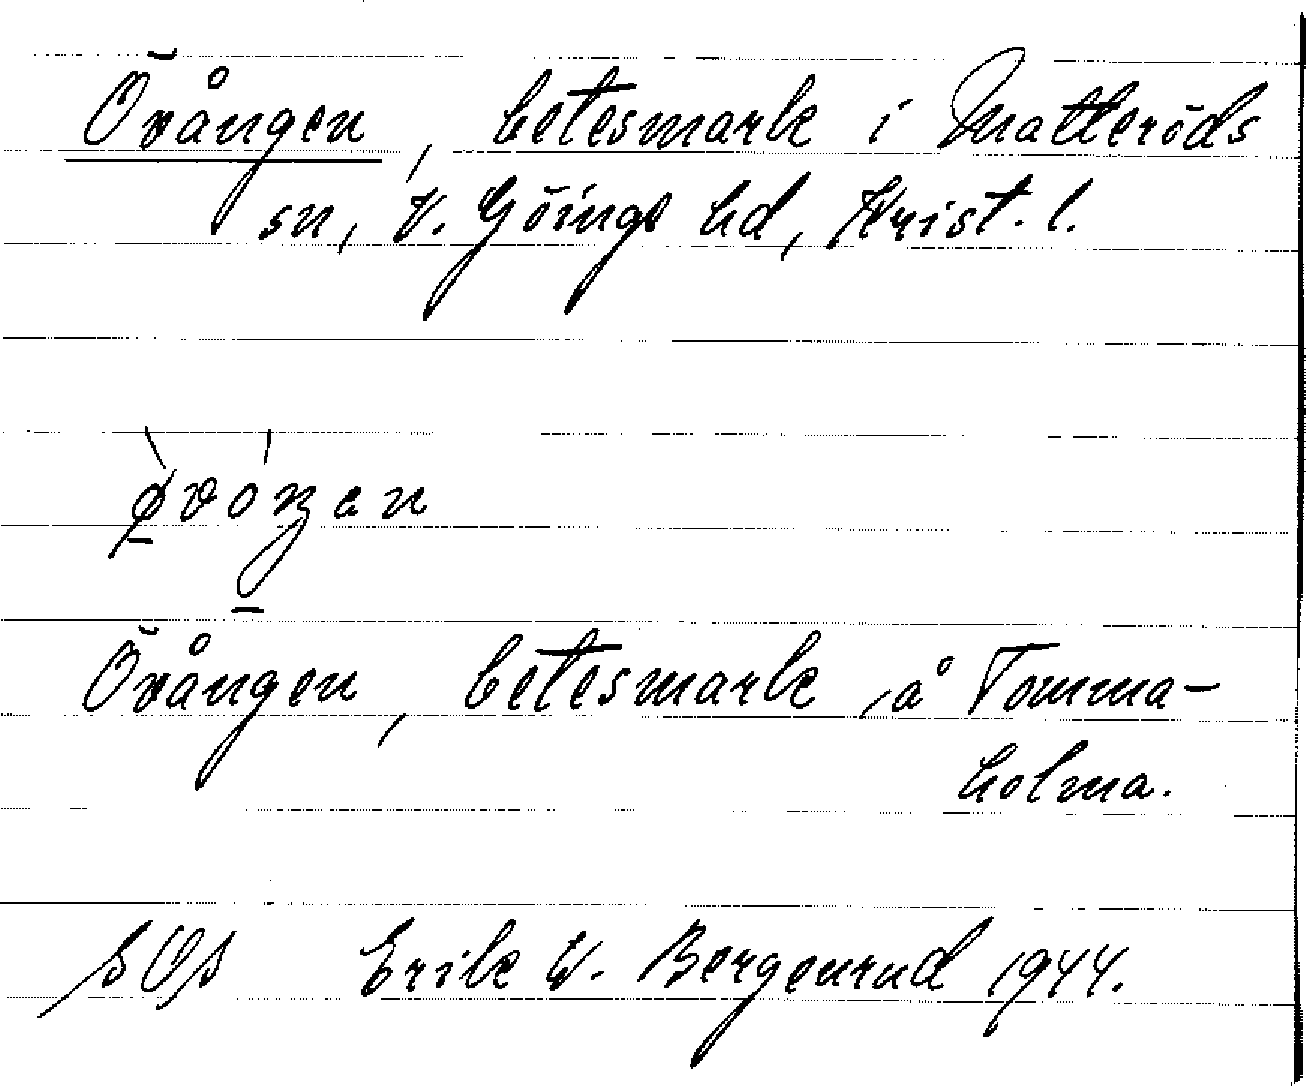 Övången, betesmark i Matteröds
sn, V. Göings hd, Krist. l.
Övången, betesmark å Tomma-
holma.
Erik W. Bergenrud 1944.